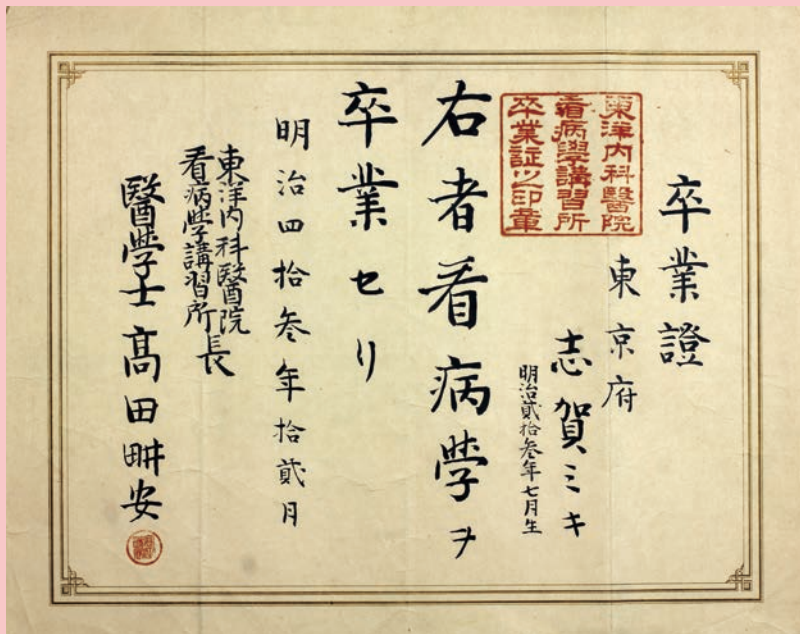 卒業證
東京府
志賀ミキ
明治貳拾參年七月生
東洋內科醫院
看病學講習所
卒業証之印章
右者看病学ヲ
卒業セリ
明治四拾参年拾貳月
東洋内科醫院
看病学講習所長
醫学士髙田畊安